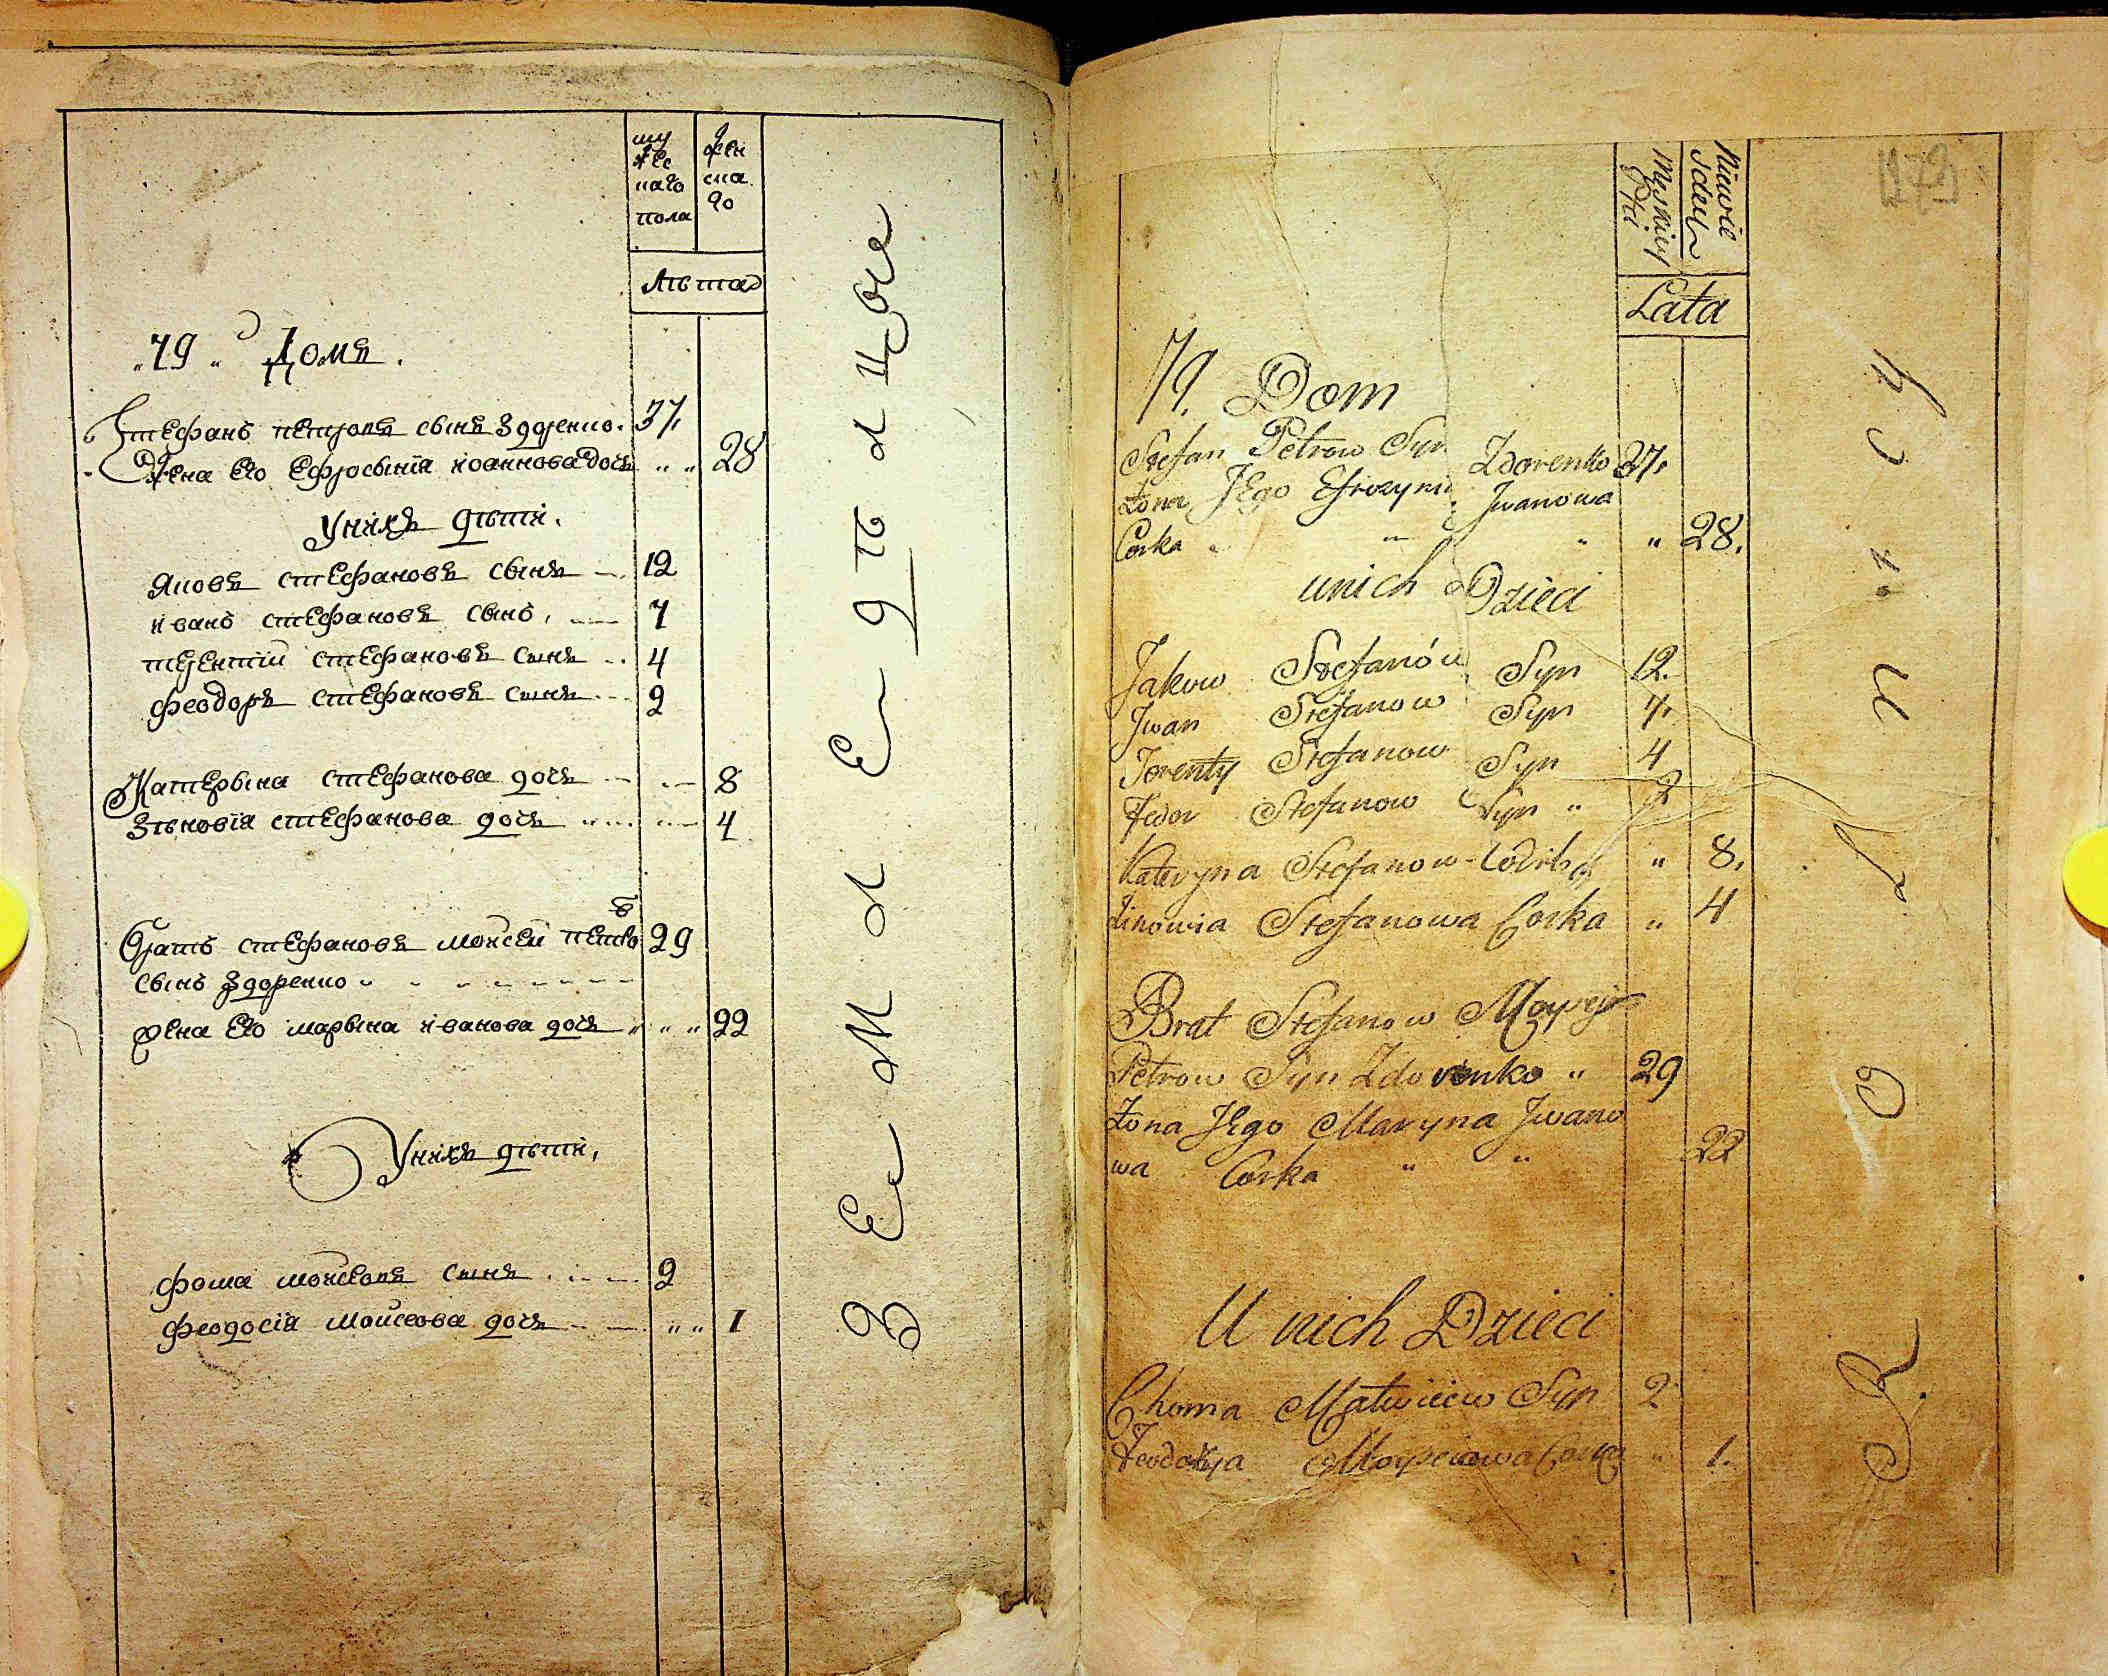 му
жес
каго
пола
жен
ска
го
лѣта
„79„ Домъ.
Стефанъ петровъ сынъ Здоренко. 37.
Жена его Ефросынія иоаннова дочь „ „ 28
У нихъ дѣти.
яковъ стефановъ сынъ 12
иванъ стефановъ сынъ, 7
терентій стефановъ сынъ 4
феодоръ стефановъ сынъ 2
Катерына стефанова дочь 8
Зѣновія стефанова дочь 4
братъ стефановъ мойсей петровъ 29
сынъ Здоренко
жена его марына иванова дочь „ „ „ 22
У нихъ дѣти,
фома мойсеовъ сынъ 2
феодосія мойсеова дочь „ „ 1
земледѣлцы
Męskiey Płci
Niewie ściey
Lata
79. Dom
Stefan Petrow Syn Zdorenko 37.
Żona Jego Efrozynia Jwanowa
Corka „ „ „ „ 28.
u nich Dzieci
Jakow Stefanów Syn 12.
Jwan Stefanow Syn 7.
Terenty Stefanow Syn 4
Fedor Stefanow Syn „ 2
Kateryna Stefanow- „ 8.
Zinowia Stefanowa Corka „ 4
Brat Stefanow Moysey
Petrow Syn Zdorenko „ 29
Żona Jego Maryna Jwano
wa Corka „ „ 22
U nich Dzieci
Choma Matwiiew Syn 2
Feodozya Moyseiowa Corka „ 1.